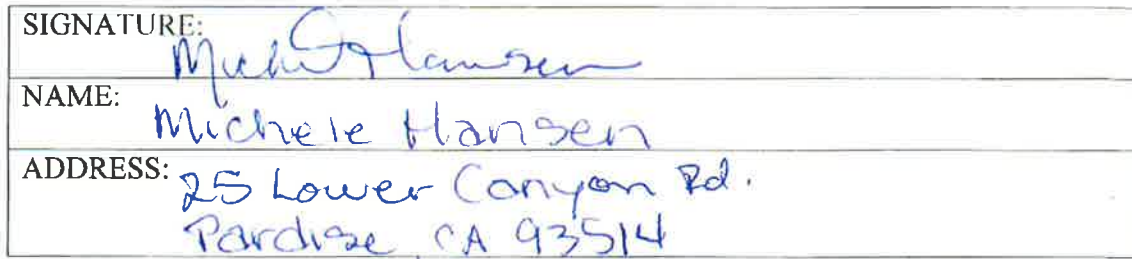 SIGNATURE: Michele Hansen
NAME: Michele Hansen
ADDRESS: 25 Lower Canyon Rd.
Pardise, CA 93514